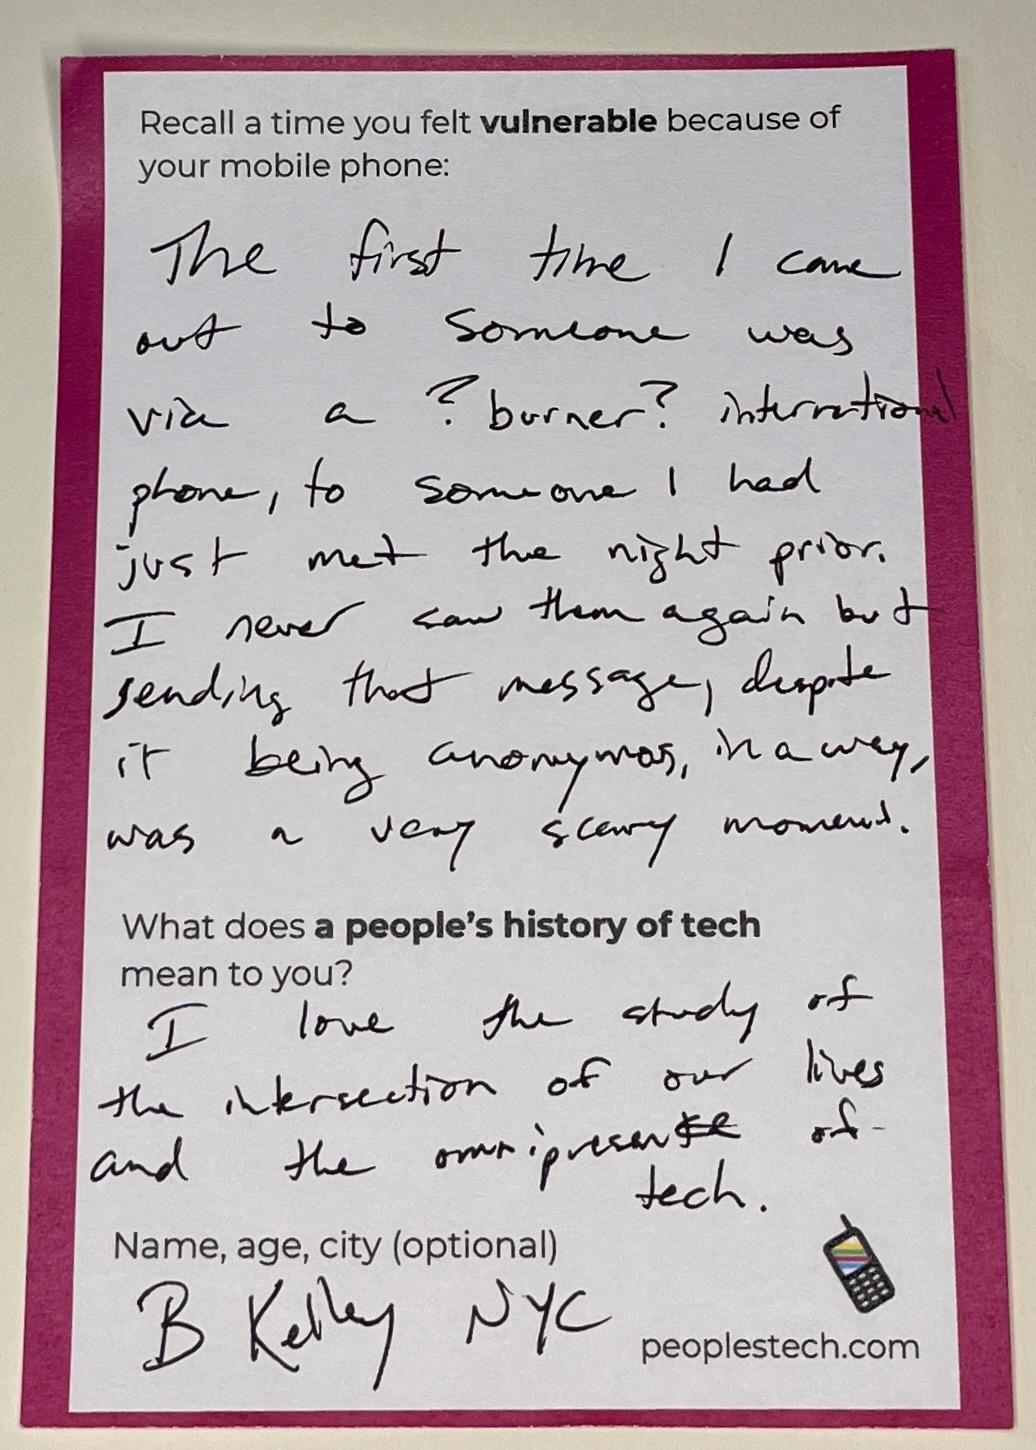 Recall a time you felt vulnerable because of
your mobile phone:
The first time I came
out to someone was
via a ? burner? international
phone, to someone I had
just met the night prior.
I never saw them again but
sending that message, despite
it being anonymos, in a way,
was a very scary moment.
What does a people's history of tech
mean to you?
I love the study of
the intersection of our lives
and the omnipresence of
tech.
Name, age, city (optional)
B Kelley NYC
peoplestech.com